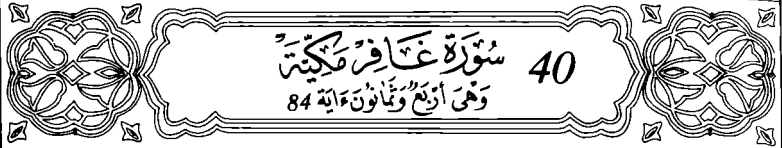 40 سُورَةُ غَافِرٍ مَكِّيَّةٌ
وَهِيَ أَرْبَعٌ وَثَمَانُونَ ءَايَة 84